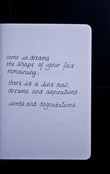 come in dreams
the shape of your face
remaining.
there is a line now,
dreams and aspirations.
words and degradations.